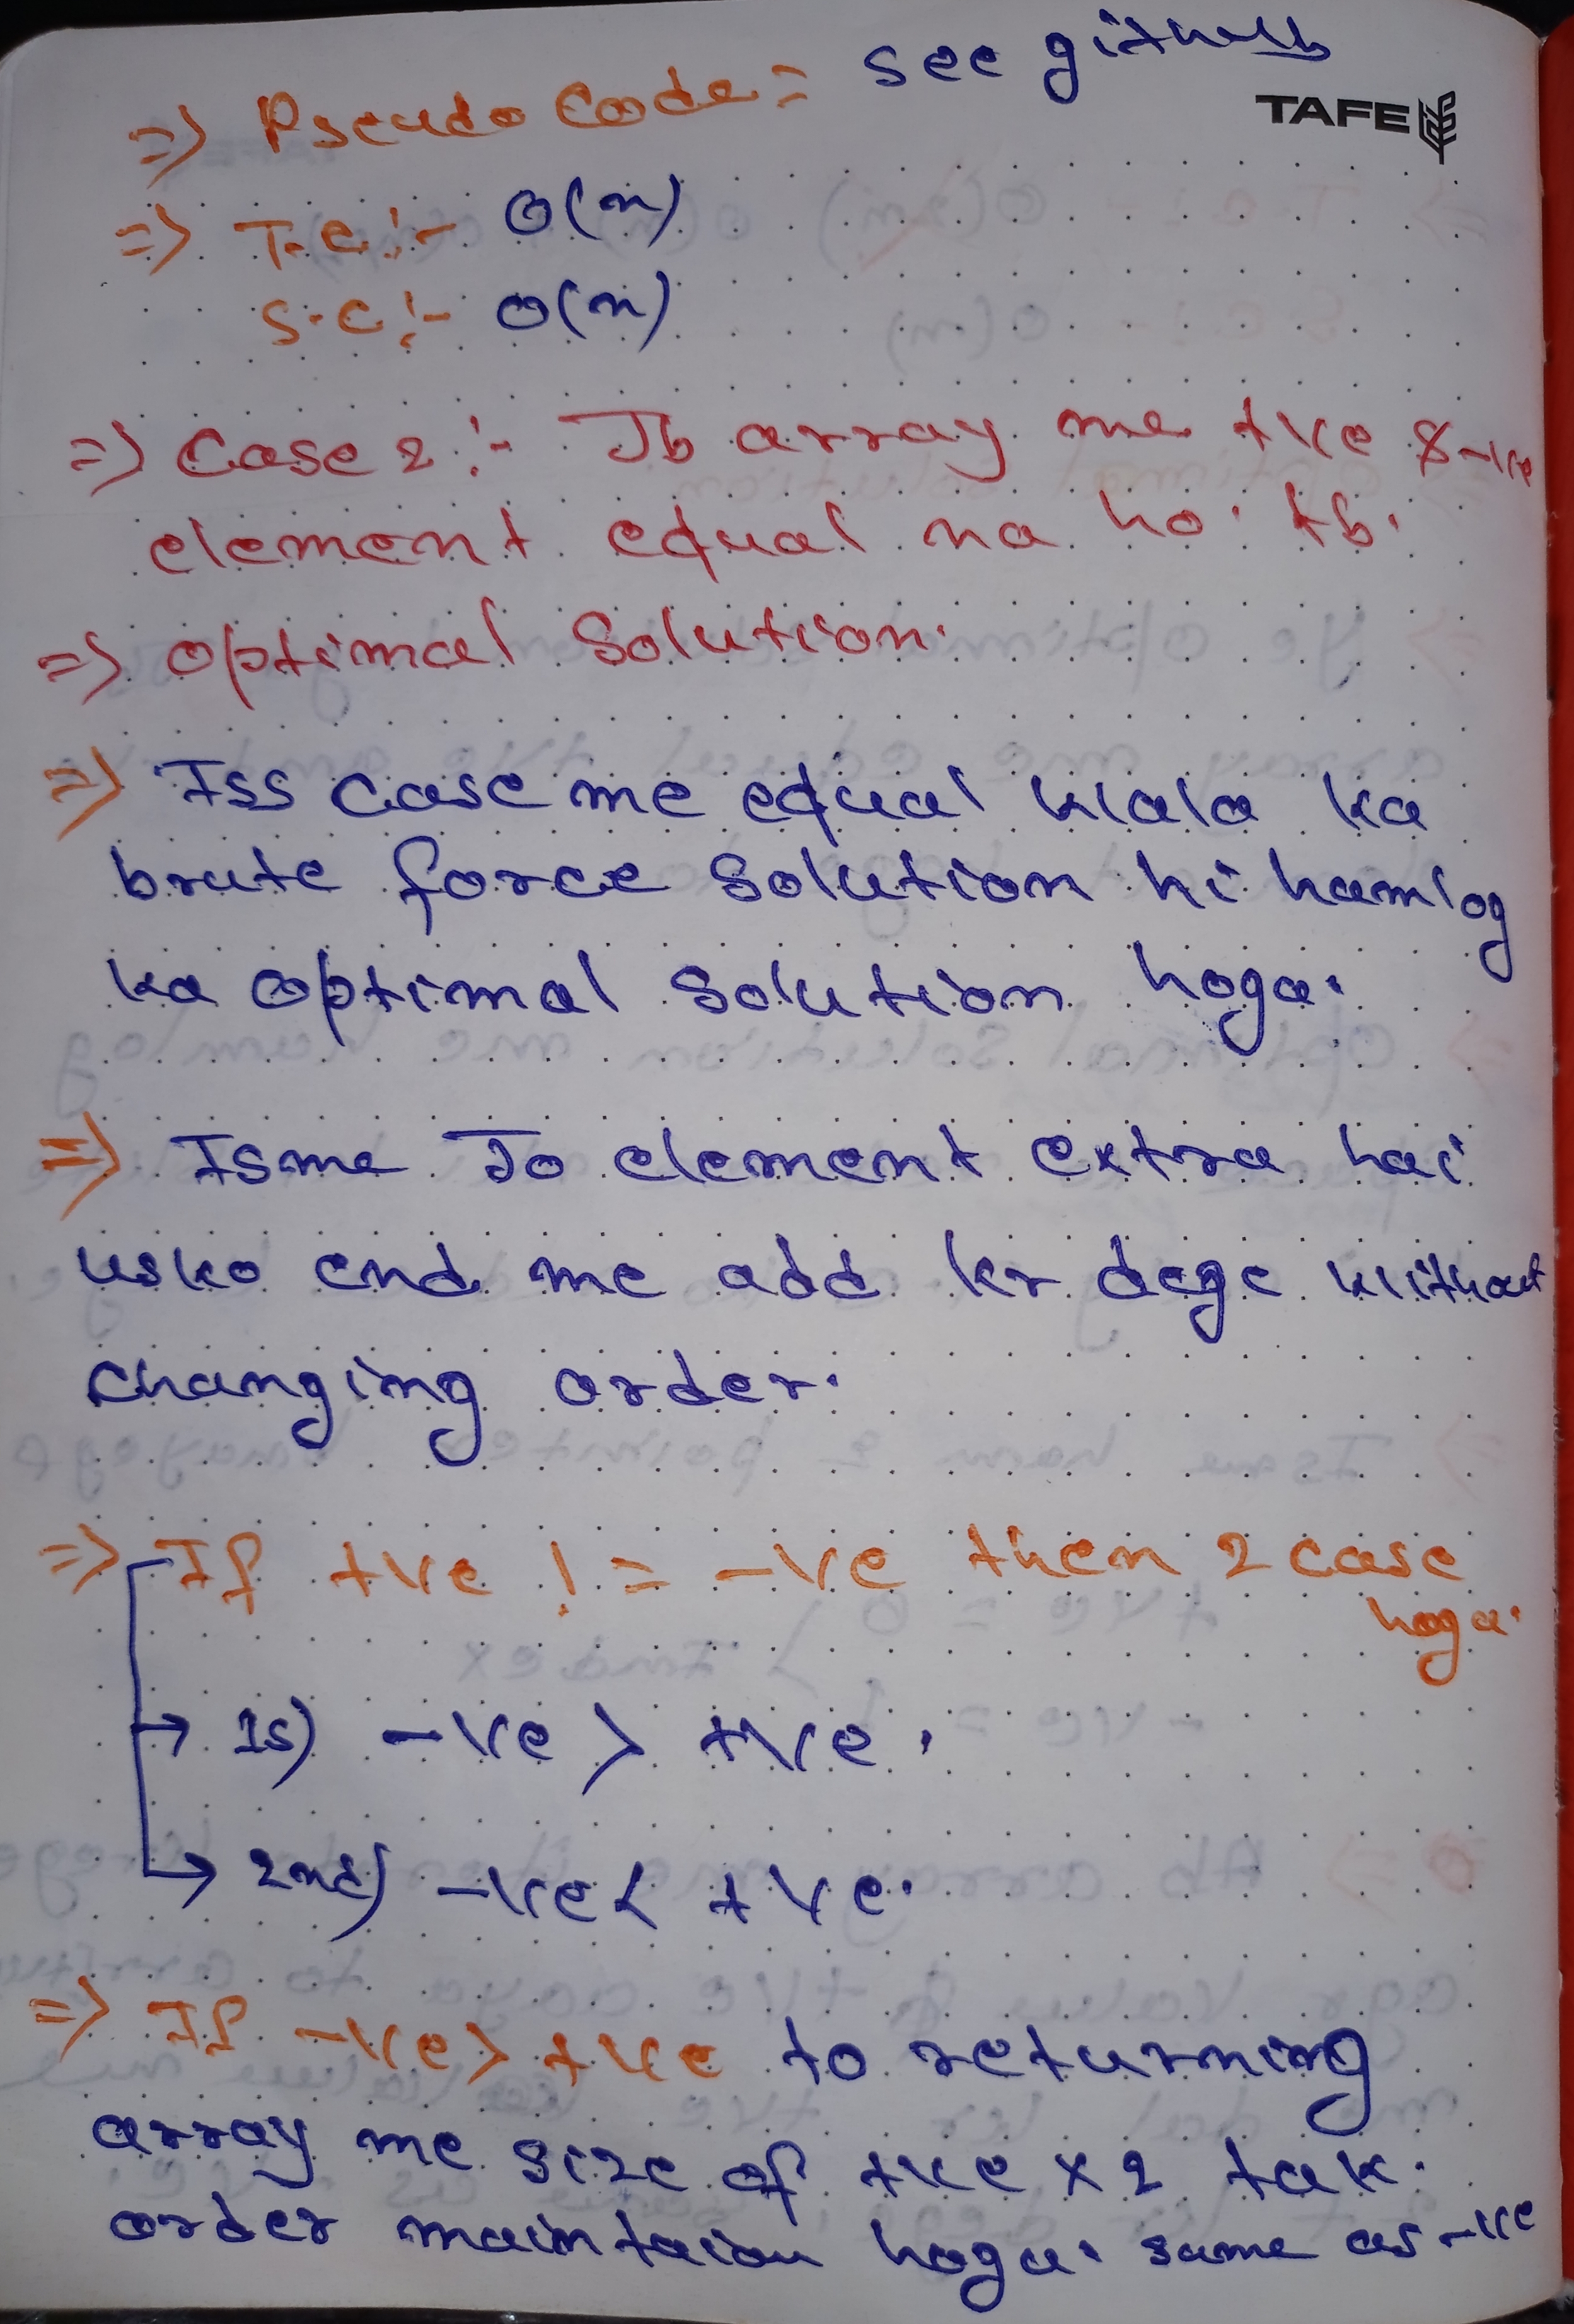 ⇒ Pseudo Code = see github
TAFE
⇒ T.C :- O(n)
S.C :- O(n)
⇒ Case 2 :- Jb array me +ve & -ve
element equal na ho. tb.
⇒ Optimal Solution.
⇒ Iss case me equal wala ka
brute force solution hi hamlog
ka optimal solution hoga.
⇒ Isme Jo element extra hai
usko end me add kr dege without
changing order.
⇒ If +ve != -ve then 2 case
hoga.
→ 1s) -ve > +ve.
→ 2nd) -ve < +ve.
⇒ If -ve > +ve to returning
array me size of +ve x 2 tak.
order maintaion hoga. same as -ve